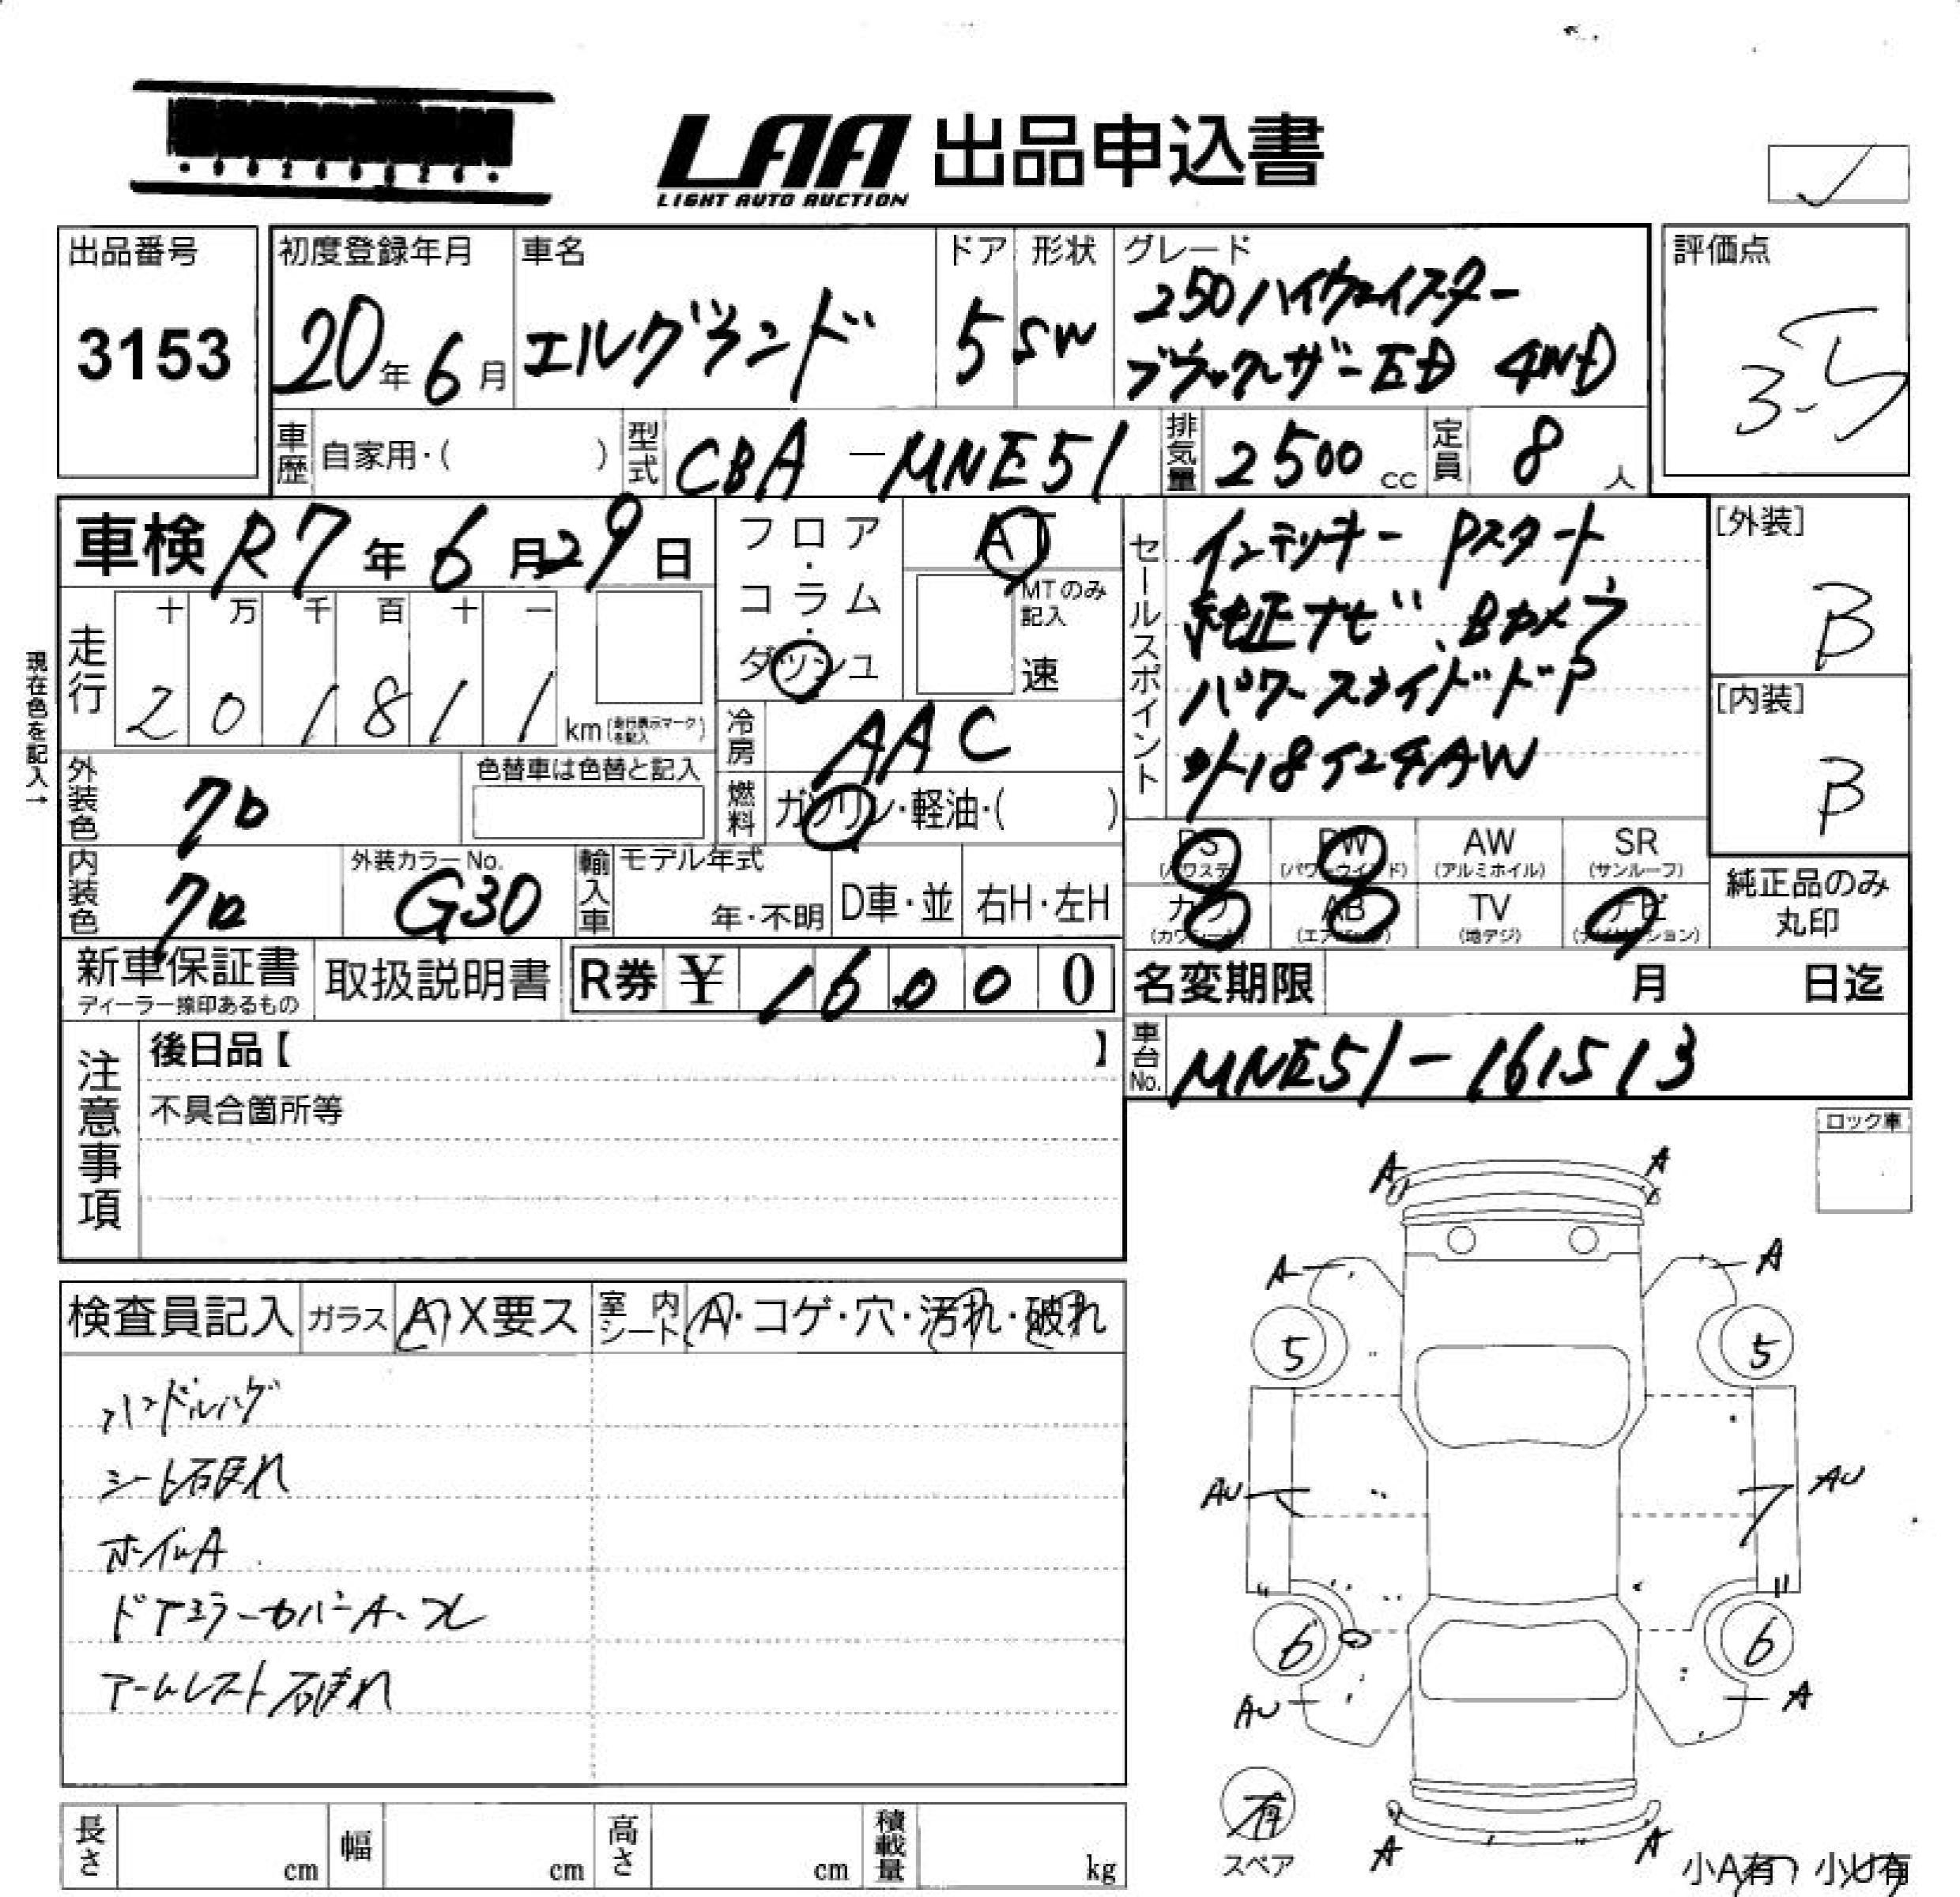 LAA 出品申込書
LIGHT AUTO AUCTION
出品番号
3153
初度登録年月
20年6月
車名
エルグランド
ドア
5
形状
SW
グレード
250ハイウェイスター
ブラックレザーED 4WD
評価点
3.5
車歴 自家用・( )
型式 CBA-MNE51
排気量 2500 cc
定員 8 人
車検 R7年6月29日
フロア・コラム・ダッシュ
AT
MTのみ記入
速
セールスポイント
インテリキー Pスタート
純正ナビ、Bカメラ
パワースライドドア
18インチAW
[外装]
B
[内装]
B
現在色を記入→
走行
十 万 千 百 十 一
2 0 1 8 1 1 km (走行表示マークを記入)
冷房 AAC
外装色 クロ
色替車は色替と記入
燃料 ガソリン・軽油・( )
内装色 クロ
外装カラーNo.
G30
輸入車 モデル年式
年・不明
D車・並
右H・左H
PS (パワステ)
PW (パワーウインド)
AW (アルミホイル)
SR (サンルーフ)
カワ (カワシート)
AB (エアバッグ)
TV (地デジ)
ナビ (ナビゲーション)
純正品のみ
丸印
新車保証書
ディーラー捺印あるもの
取扱説明書
R券 ¥ 16000
名変期限 月 日迄
注意事項
後日品【 】
不具合箇所等
車台No. MNE51-161513
ロック車
検査員記入
ガラス A X要ス
室内シート A・コゲ・穴・汚れ・破れ
ハンドルハゲ
シート破れ
ホイルA
ドアミラーカバーA
アームレスト破れ
A A
A A
5 5
AU AU
6 6
AU A
A A
有
スペア
小A有 小U有
長さ cm
幅 cm
高さ cm
積載量 kg